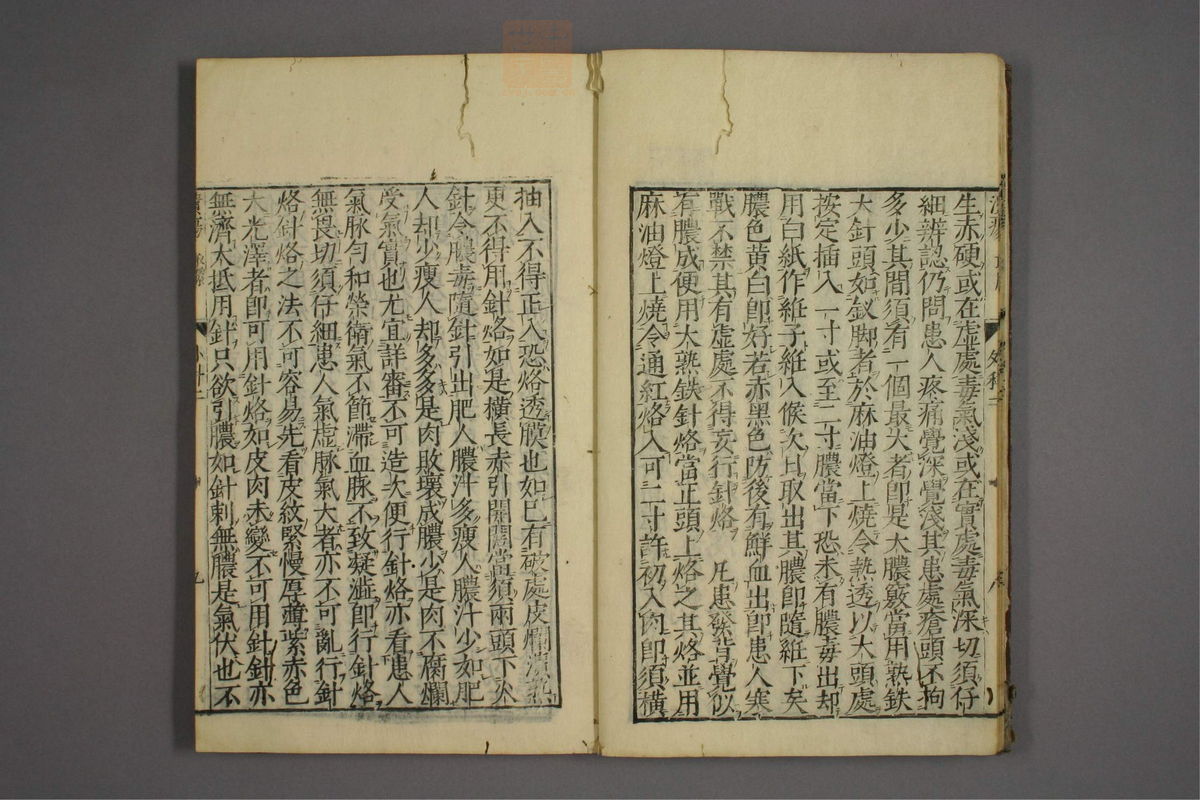 生赤硬或在虚處毒氣淺或在實處毒氣深切須仔
細辨認仍問患人疼痛覺深覺淺其患處瘡頭不拘
多少其間須有一個最大者即是大膿竅當用熟鉄
大針頭如釵脚者於麻油燈上燒令熱透以大頭處
按定插入一寸或至二寸膿當下恐未有膿毒出却
用白紙作紙子紙入候次日取出其膿即隨紙下矣
膿色黄白即好若赤黑色防後有鮮血出即患人寒
戰不禁其有虚處不得妄行針烙 凡患發背覺似
有膿成便用大熟鉄針烙當正頭上烙之其烙並用
麻油燈上燒令通紅烙入可二寸許初入肉即須横
抽入不得正入恐烙透膜也如已有破處皮爛潰
更不得用針烙如是横長赤引開闊當須兩頭下火
針令膿毒隨針引出肥人膿汁多瘦人膿汁少如肥
人却少瘦人却多多是肉敗壞成膿少是肉不腐爛
受氣實也尤宜詳審不可造次便行針烙亦看患人
氣脉勻和榮衛氣不節滯血脉不致凝澁即行針烙
無畏切須仔細患人氣虚脉氣大者亦不可亂行針
烙針烙之法不可容易先看皮紋緊慢厚薄紫赤色
大光澤者即可用針烙如皮肉未變不可用針針亦
無濟大抵用針只欲引膿如針刺無膿是氣伏也不
九